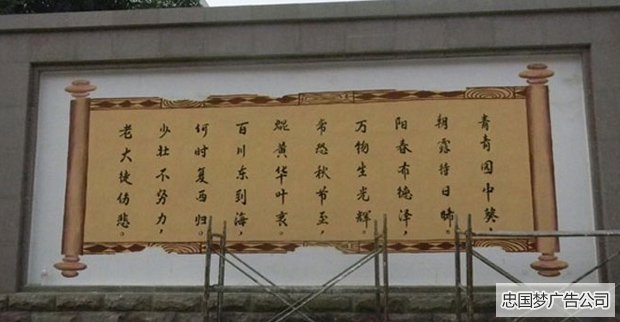 青青园中葵，
朝露待日晞。
阳春布德泽，
万物生光辉。
常恐秋节至，
焜黄华叶衰。
百川东到海，
何时复西归。
少壮不努力，
老大徒伤悲。
忠国梦广告公司